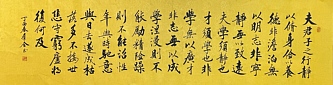 夫君子之行静
以脩身儉以養
德非澹泊無
以明志非寧
静無以致遠
夫學須静也
才須學也非
學無以廣才
非志無以成
學淫漫則不
能勵精險躁
則不能冶性
年與時馳意
與日去遂成枯
落多不接世
悲守窮廬將
復何及